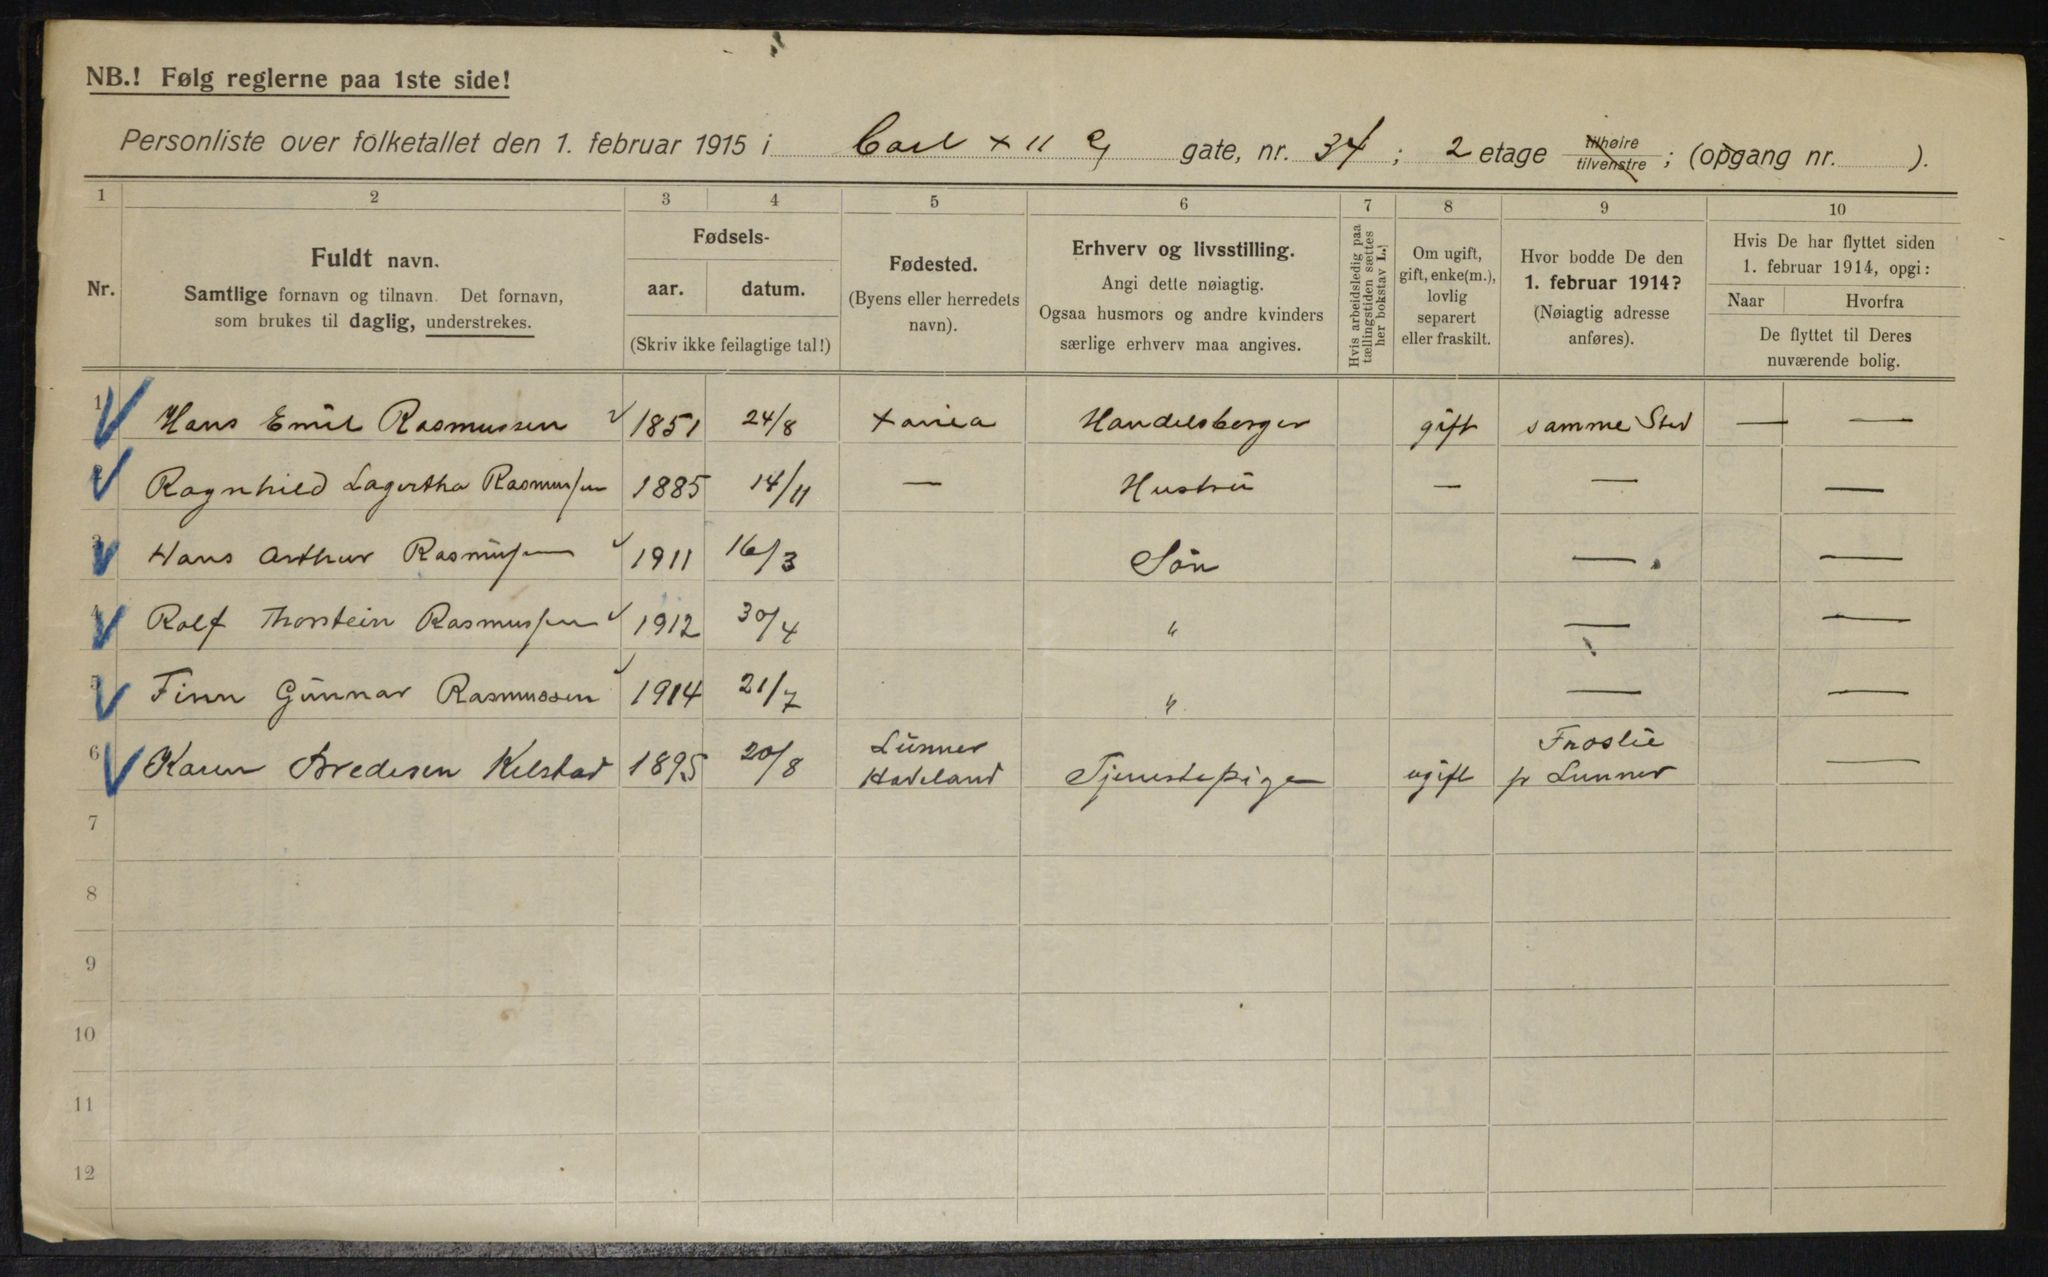 NB.! Følg reglerne paa 1ste side!
Personliste over folketallet den 1. februar 1915 i Carl XII G gate, nr. 34; 2 etage tilhøire tilvenstre; (opgang nr. ).
1 2 3 4 5 6 7 8 9 10
Nr.
Fuldt navn.
Samtlige fornavn og tilnavn. Det fornavn,
som brukes til daglig, understrekes.
Fødsels-
aar. datum.
(Skriv ikke feilagtige tal!)
Fødested.
(Byens eller herredets
navn).
Erhverv og livsstilling.
Angi dette nøiagtig.
Ogsaa husmors og andre kvinders
særlige erhverv maa angives.
Hvis arbeidsledig paa
tællingstiden sættes
her bokstav L.!
Om ugift,
gift, enke(m.),
lovlig
separert
eller fraskilt.
Hvor bodde De den
1. februar 1914?
(Nøiagtig adresse
anføres).
Hvis De har flyttet siden
1. februar 1914, opgi:
Naar Hvorfra
De flyttet til Deres
nuværende bolig.
1 Hans Emil Rasmussen 1851 24/8 Xania Handelsborger gift samme Sted — —
2 Ragnhild Lagertha Rasmussen 1885 14/11 — Hustrü — — —
3 Hans Arthur Rasmüssen 1911 16/3 Sön — —
4 Rolf Thorstein Rasmussen 1912 30/4 " — —
5 Finn Günnar Rasmussen 1914 21/7 " — —
6 Karen Bredesen Kelstad 1895 20/8 Lünner Hadeland Tjenestepige ugift Froslie pr Lunner —
7
8
9
10
11
12